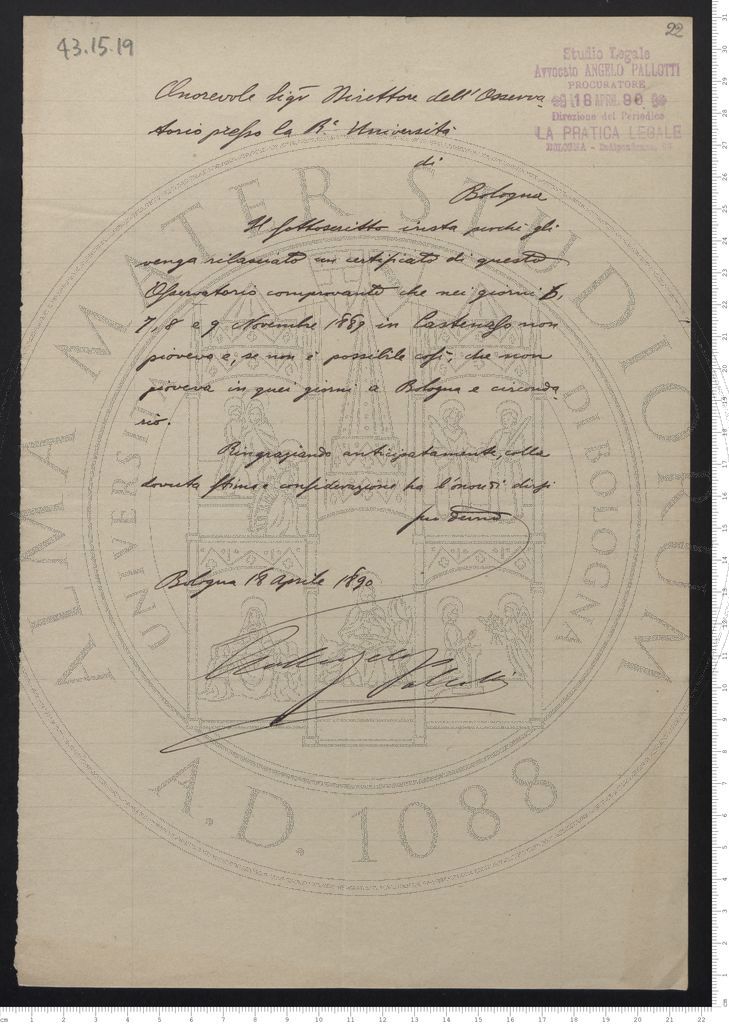 43.15.19
22
Studio Legale
Avvocato ANGELO PALLOTTI
PROCURATORE
18 APRIL 90
Direzione del Periodico
LA PRATICA LEGALE
BOLOGNA - Indipendenza
Onorevole Sigr Direttore dell'Osserva
torio presso la Ra Università
di
Bologna
Il sottoscritto insta perchè gli
venga rilasciato un certificato di questo
Osservatorio comprovante che nei giorni 6,
7, 8 e 9 Novembre 1889 in Castenaso non
pioveva e, se non è possibile così, che non
pioveva in quei giorni a Bologna e circonda
rio.
Ringraziando anticipatamente, colla
dovuta stima e considerazione ha l'onore di dirsi
suo
Bologna 18 Aprile 1890
Angelo Pallotti
ALMA MATER STUDIORUM
UNIVERSITÀ DI BOLOGNA
A.D. 1088